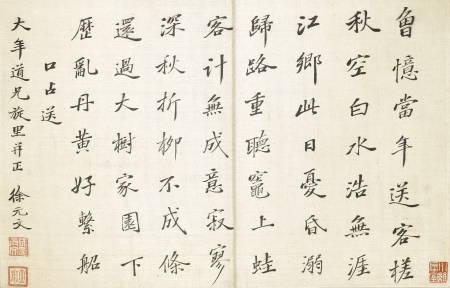 曾憶當年送客槎
秋空白水浩無涯
江鄉此日憂昏溺
歸路重聽竈上蛙
客計無成意寂寥
深秋折柳不成條
還過大樹家園下
歷亂丹黃好繫
口占送
大年道兄旋里并正 徐元文